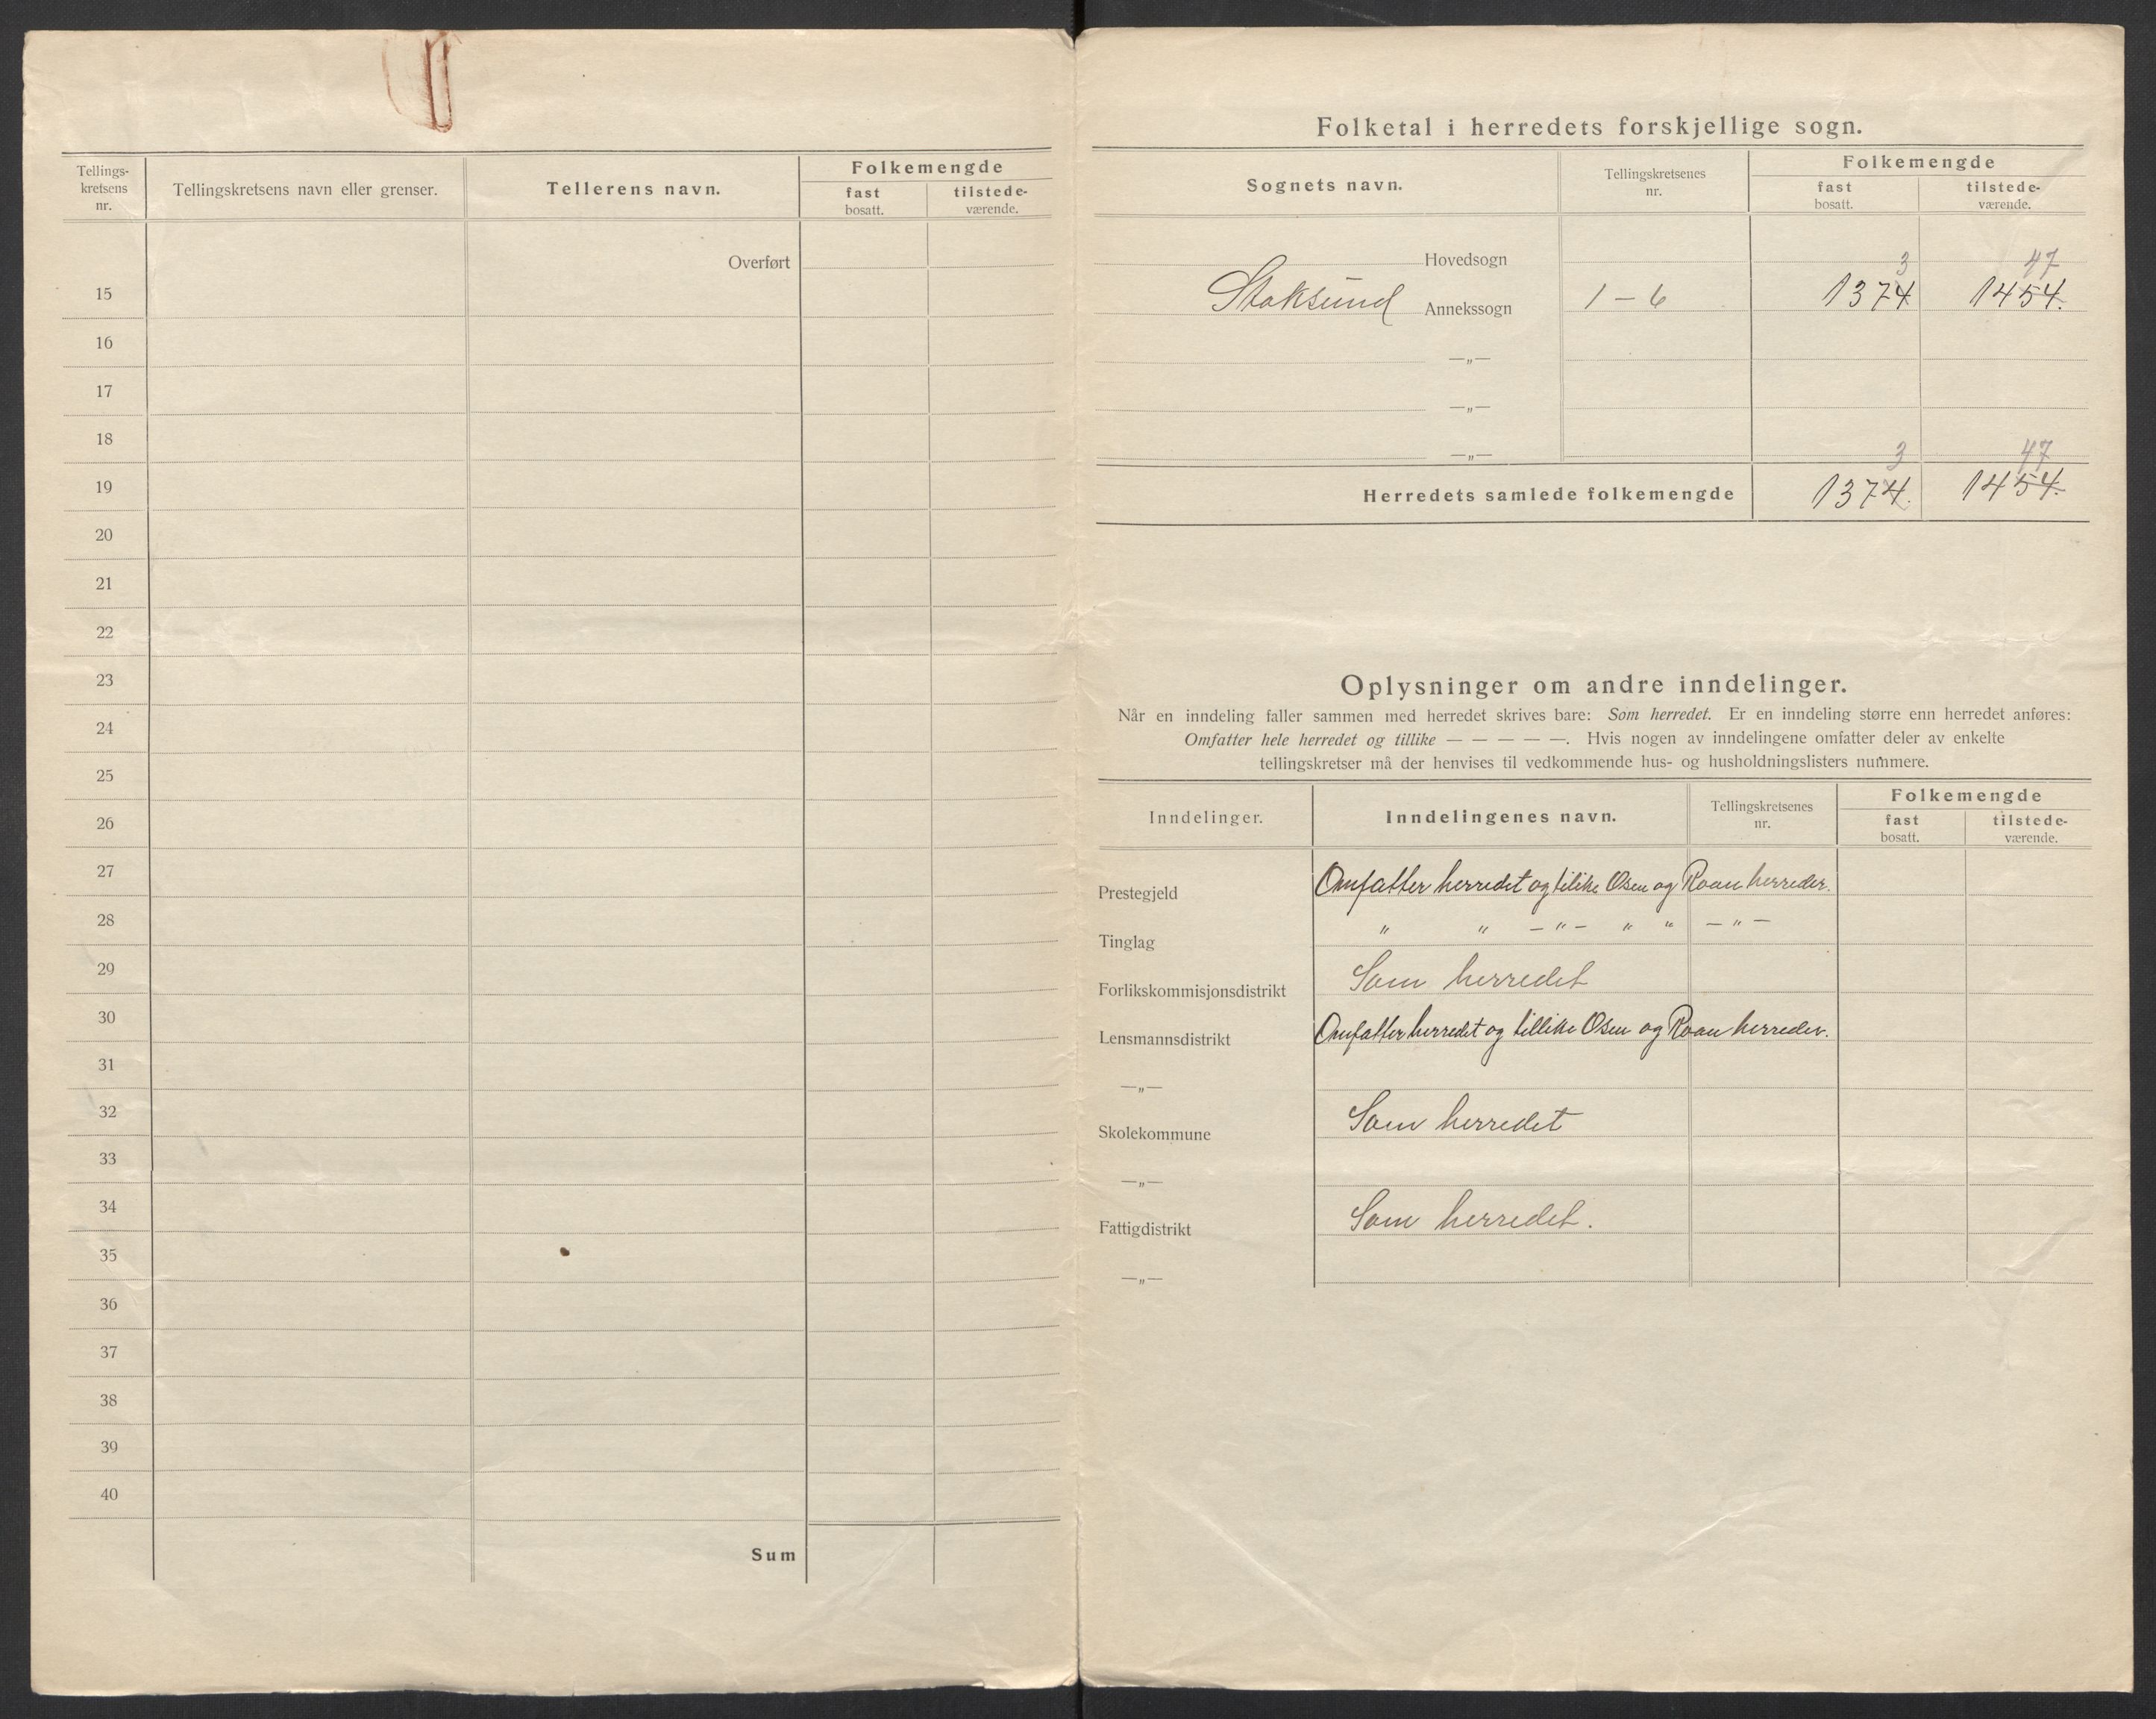 Tellings-
kretsens
nr.
Tellingskretsens navn eller grenser.
Tellerens navn.
Folkemengde
fast
bosatt.
tilstede-
værende.
Overført
15
16
17
18
19
20
21
22
23
24
25
26
27
28
29
30
31
32
33
34
35
36
37
38
39
40
Sum
Folketal i herredets forskjellige sogn.
Sognets navn.
Tellingskretsenes
nr.
Folkemengde
fast
bosatt.
tilstede-
værende.
Hovedsogn
3 47
Stoksund Annekssogn 1 – 6 1374 1454.
—„—
—„—
—„—
3 47
Herredets samlede folkemengde 1374. 1454.
Oplysninger om andre inndelinger.
Når en inndeling faller sammen med herredet skrives bare: Som herredet. Er en inndeling større enn herredet anføres:
Omfatter hele herredet og tillike — — — — —. Hvis nogen av inndelingene omfatter deler av enkelte
tellingskretser må der henvises til vedkommende hus- og husholdningslisters nummere.
Inndelinger.
Inndelingenes navn.
Tellingskretsenes
nr.
Folkemengde
fast
bosatt.
tilstede-
værende.
Prestegjeld Omfatter herredet og tilike Osen og Roan herreder.
Tinglag „ „ – „ – „ „ – „ –
Forlikskommisjonsdistrikt Som herredet
Lensmannsdistrikt Omfatter herredet og tillike Osen og Roan herreder.
—„—
Skolekommune Som herredet
—„—
Fattigdistrikt Som herredet.
—„—